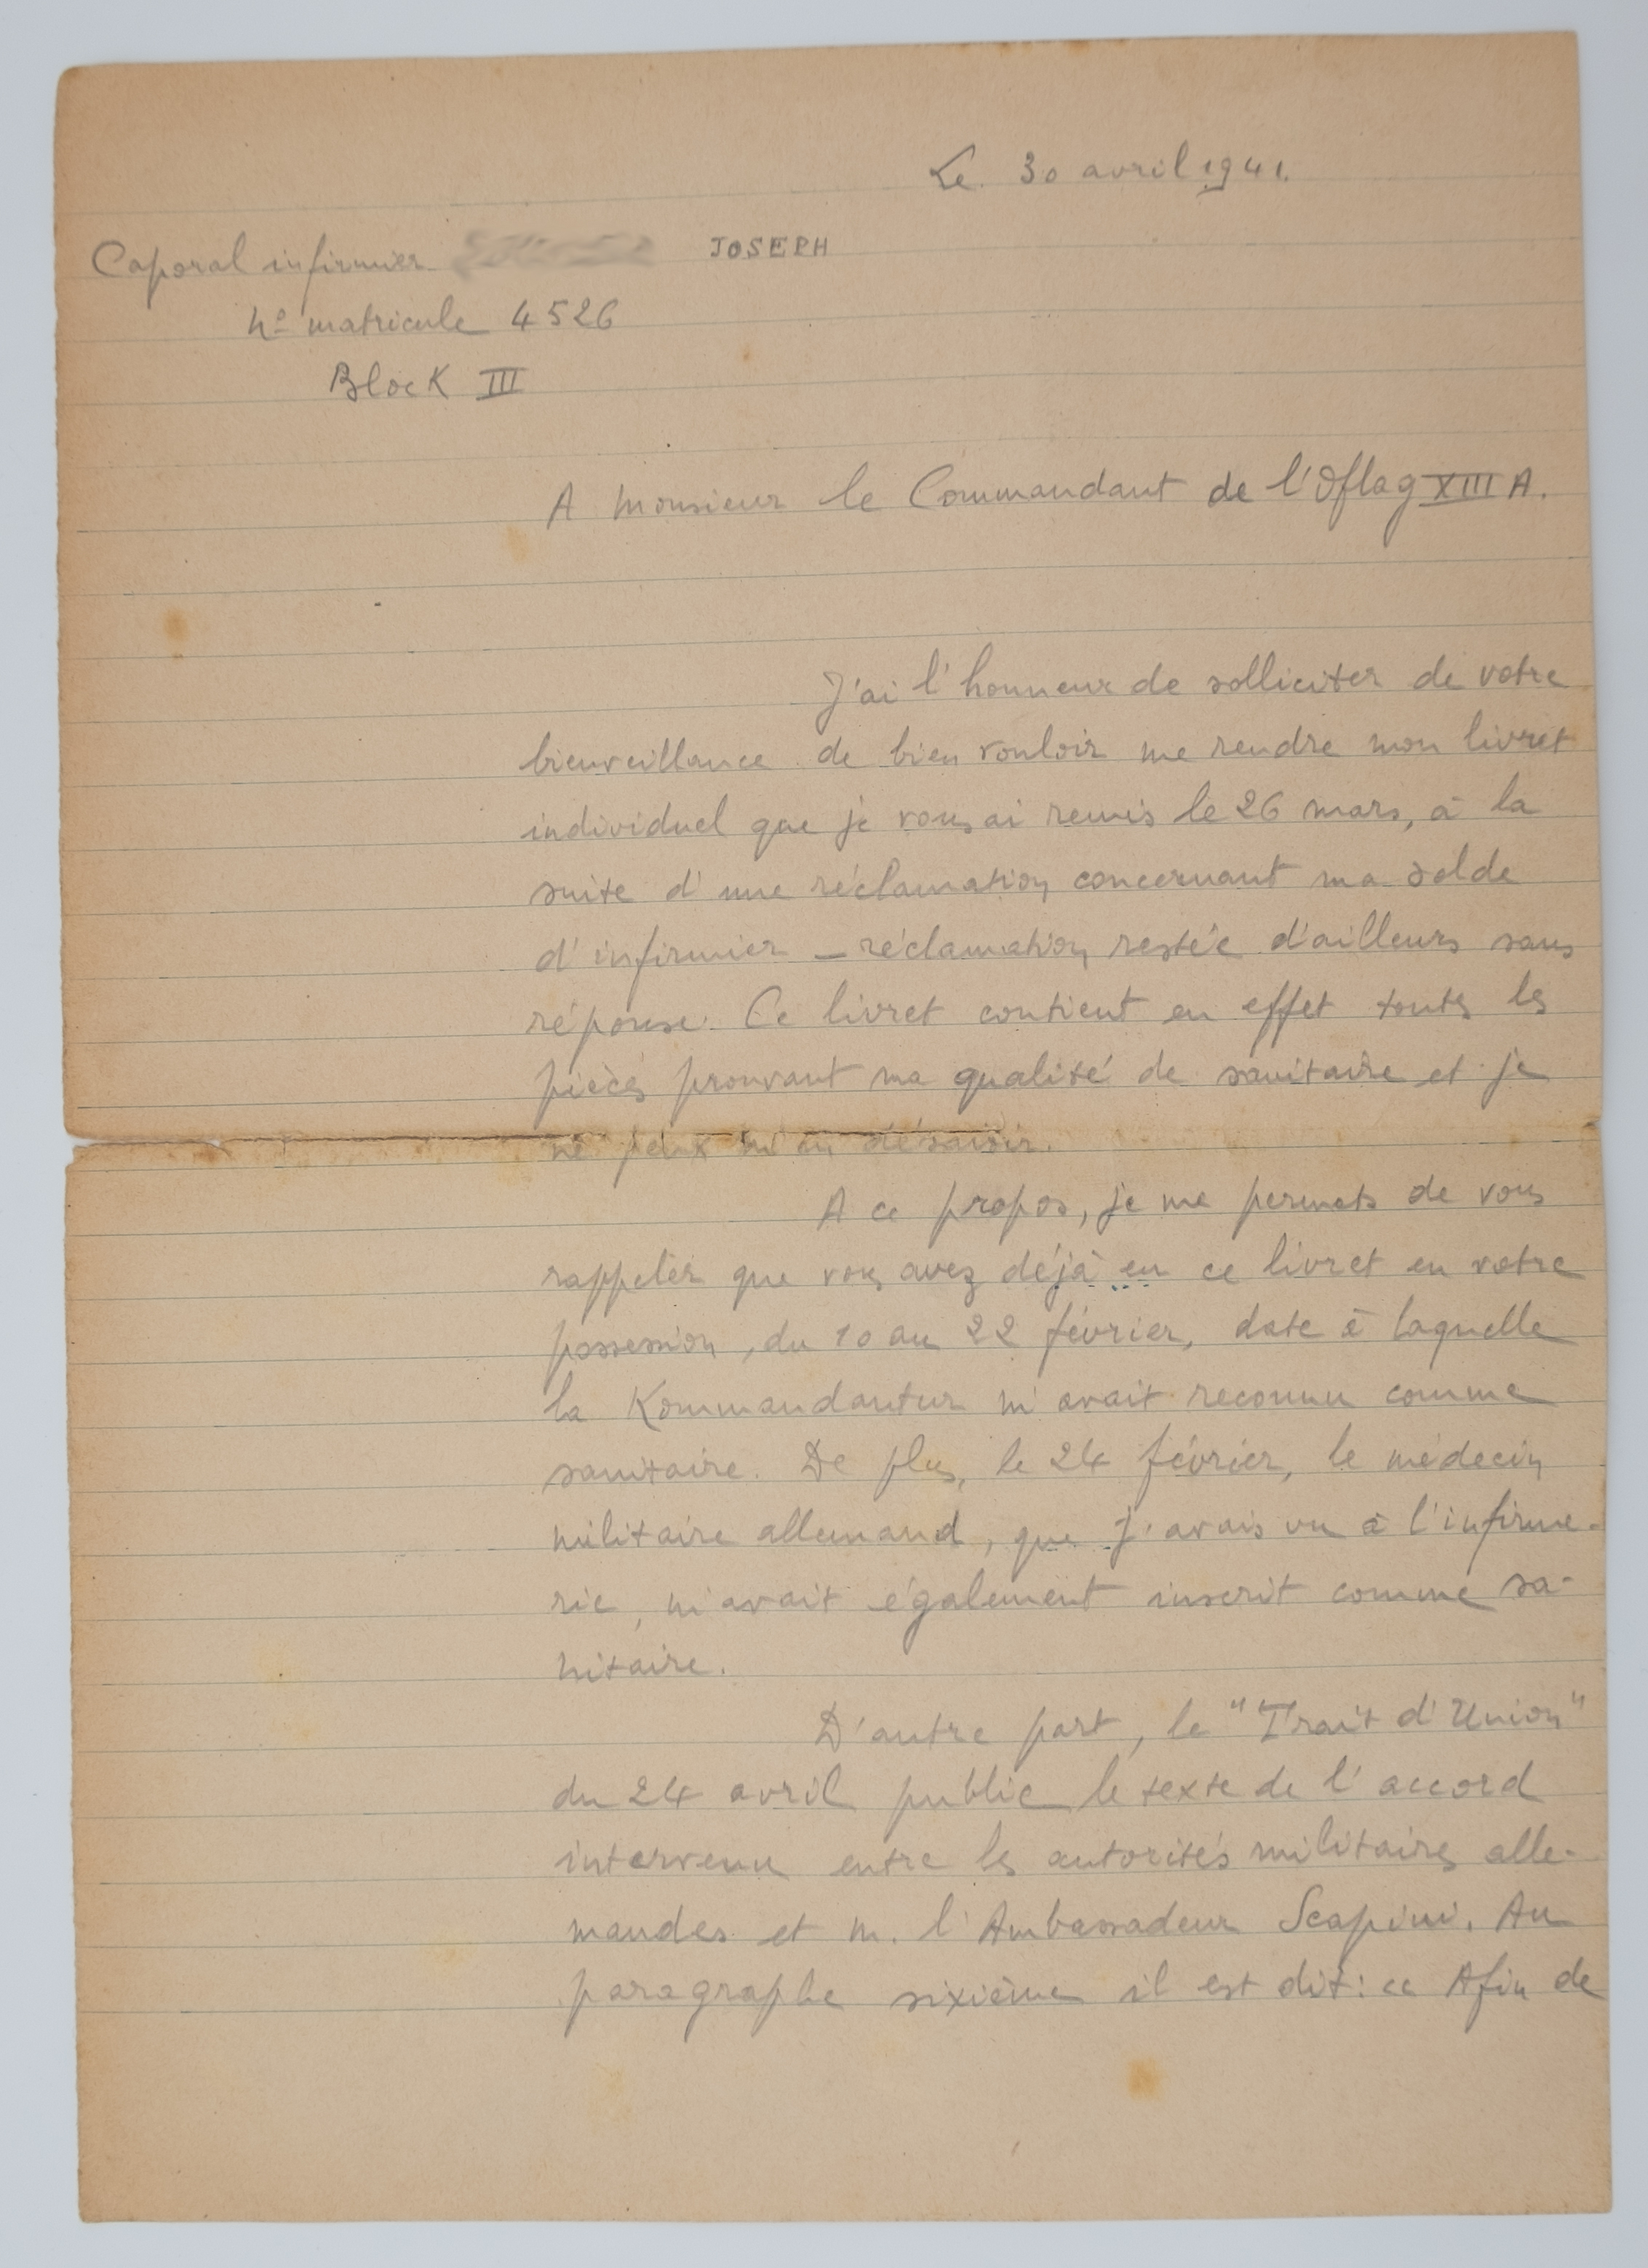 Le 30 avril 1941.
Caporal infirmier JOSEPH
No matricule 4526
Block III
A Monsieur le Commandant de l'Oflag XIII A.
J'ai l'honneur de solliciter de votre
bienveillance de bien vouloir me rendre mon livret
individuel que je vous ai remis le 26 mars, à la
suite d'une réclamation concernant ma solde
d'infirmier – réclamation restée d'ailleurs sans
réponse. Ce livret contient en effet toutes les
pièces prouvant ma qualité de sanitaire et je
ne peux m'en désaisir.
A ce propos, je me permets de vous
rappeler que vous avez déjà eu ce livret en votre
possession, du 10 au 22 février, date à laquelle
la Kommandantur m'avait reconnu comme
sanitaire. De plus, le 24 février, le médecin
militaire allemand, que j'avais vu à l'infirme-
rie, m'avait également inscrit comme sa-
nitaire.
D'autre part, le "Trait d'Union"
du 24 avril publie le texte de l'accord
intervenu entre les autorités militaires alle-
mandes et M. l'Ambassadeur Scapini. Au
paragraphe sixième il est dit : « Afin de